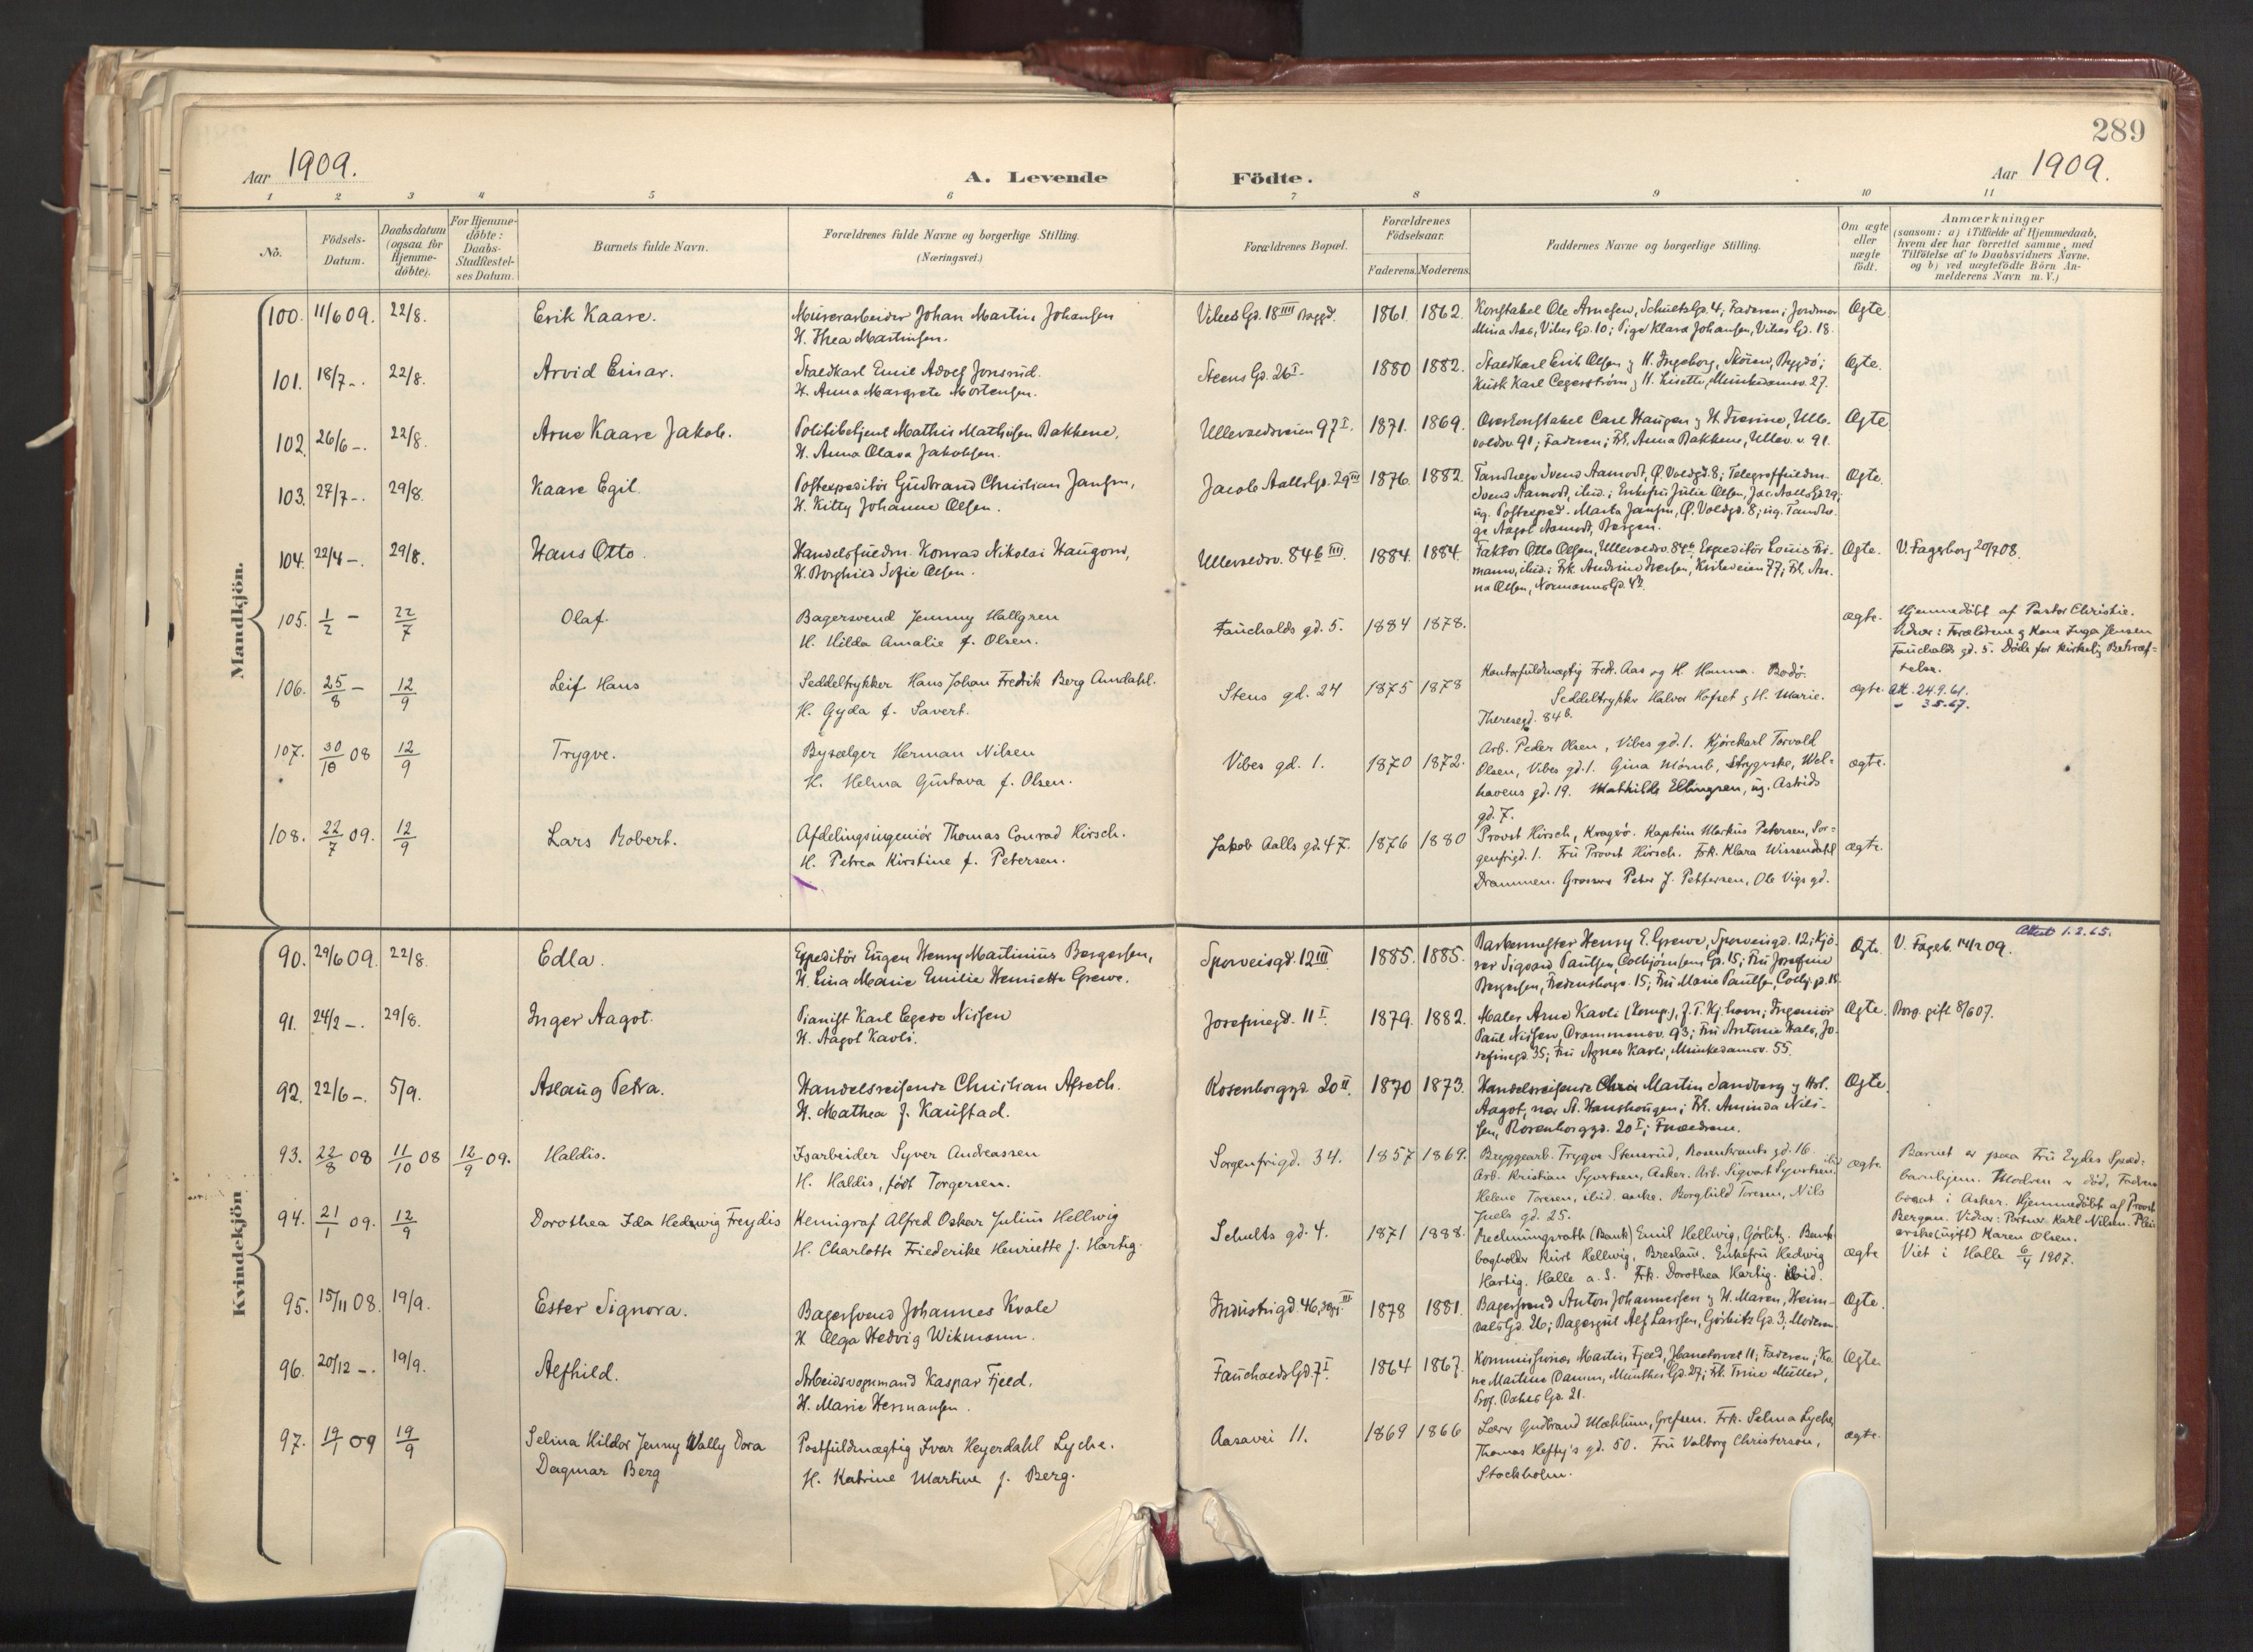 289
Aar 1909.
A. Levende Födte.
Aar 1909.
1 2 3 4 5 6 7 8 9 10 11
No.
Födsels-
Datum.
Daabsdatum
(ogsaa for
Hjemme-
döbte).
For Hjemme-
döbte:
Daabs-
Stadfæstel-
ses Datum.
Barnets fulde Navn.
Forældrenes fulde Navne og borgerlige Stilling.
(Næringsvei.)
Forældrenes Bopæl.
Forældrenes
Födselsaar.
Faderens. Moderens.
Faddernes Navne og borgerlige Stilling.
Om ægte
eller
uægte
födt.
Anmærkninger
(saasom: a) i Tilfælde af Hjemmedaab,
hvem der har forrettet samme, med
Tilföielse af to Daabsvidners Navne.
og b) ved uægtefödte Börn An-
melderens Navn m. V.)
Mandkjön.
100. 11/6 09. 22/8. Erik Kaare.
Murerarbeider Johan Martin Johansen
H. Thea Martinsen.
Vibes Gd. 18 IIII Baggd. 1861. 1862.
Konstabel Ole Arnesen, Schultz Gd. 4; Faderen; Jordmor
Mina Aas, Vibes Gd. 10; Pige Klara Johansen, Vibes Gd. 18.
Ægte.
101. 18/7 -. 22/8. Arvid Einar.
Staldkarl Emil Adolf Jonsrud.
H. Anna Margrete Mortensen.
Steens Gd. 26 I. 1880 1882.
Staldkarl Erik Olsen og H. Ingeborg, Skøien, Bygdö;
Kusk Karl Cegerström og H. Lisette, Munkedamsv. 27.
Ægte.
102. 26/6 -. 22/8. Arne Kaare Jakob.
Politibetjent Mathis Mathisen Bakkene,
H. Anna Olava Jakobsen.
Ullevoldsveien 97 I. 1871. 1869.
Overkonstabel Carl Haugen og H. Iverine, Ulle-
voldsv. 91; Faderen; Frk. Anna Bakkene, Ullev. v. 91.
Ægte
103. 27/7 -. 29/8. Kaare Egil.
Postexpeditör Gudbrand Christian Jansen,
H. Kitty Johanne Olsen.
Jacob Aalls Gd. 29 III 1876. 1882.
Tandlæge Svend Aamodt, Ø. Voldgd. 8; Telegraffuldm.
Svend Aamodt, ibid.; Enkefru Julie Olsen, Jac. Aalls Gd. 29;
ug. Postexped. Marta Jansen, Ø. Voldgd. 8; ug. Tandlæ-
ge Aagot Aamodt, Bergen.
Ægte.
104. 22/4 -. 29/8. Hans Otto.
Handelsfuldm. Konrad Nikolai Haugom,
H. Borghild Sofie Olsen.
Ullevoldsv. 84 b IIII. 1884. 1884.
Faktor Otto Olsen, Ullevoldsv. 84 b; Expeditör Louis Fri-
mann, ibid.; Frk. Andrine Iversen, Kirkeveien 77; Frk. An-
na Olsen, Normanns Gd. 42.
Ægte. V. Fagerborg 20/7 08.
105. 1/2 - 22/7 Olaf.
Bagersvend Jenny Hallgren
H. Hilda Amalie f. Olsen.
Fauchalds gd. 5. 1884 1878. ægte.
Hjemmedöbt af Pastor Christie.
Vidner: Forældrene og Kone Inga Jensen
Fauchalds gd. 5. Döde för kirkelig Bekræf-
telse.
106. 25/8 - 12/9 Leif Hans
Seddeltrykker Hans Johan Fredrik Berg Amdahl.
H. Gyda f. Savert.
Stens gd. 24 1875 1878
Kontorfuldmægtig Fredr. Aas og H. Hanna. Bodö.
Seddeltrykker Halvor Hofset og H. Marie.
Theresegd. 84 b.
ægte. Att. 24.9.61.
" 3.5.67.
107. 30/10 08 12/9 Trygve.
Bysælger Herman Nilsen
H. Helma Gustava f. Olsen.
Vibes gd. 1. 1870 1872.
Arb. Peder Olsen, Vibes gd. 1. Kjörekarl Torvald
Olsen, Vibes gd. 1. Gina Mörub, Strygerske, Wel-
havens gd. 19. Mathilde Ellingsen, ug. Astrids
gd. 7.
ægte.
108. 22/7 09. 12/9 Lars Robert.
Afdelingsingeniör Thomas Conrad Hirsch.
H. Petrea Kirstine f. Petersen.
Jakob Aalls gd. 47. 1876 1880
Provst Hirsch, Kragerö. Kaptein Markus Petersen, Sor-
genfrigd. 1. Fru Provst Hirsch. Frk. Klara Wissendahl
Drammen. Grosserer Peter J. Pettersen, Ole Vigs gd.
ægte.
Kvindekjön
90. 29/6 09. 22/8. Edla.
Expeditör Eugen Henry Martinius Bergersen,
H. Lina Marie Emilie Henriette Grewe.
Sporveisgd. 12 III. 1885. 1885.
Barbermester Henry E. Grewe, Sporveisgd. 12; Kjö-
rer Sigvard Paulsen, Colbjörnsens Gd. 15; Fru Josefine
Bergersen, Fredensborgv. 15; Fru Marie Paulsen, Colbj. g. 15.
Ægte. V. Fagerb. 14/2 09. Attest 1.2.65.
91. 24/2 -. 29/8. Inger Aagot.
Pianist Karl Egede Nissen
H. Aagot Kavli.
Josefinegd. 11 I. 1879. 1882.
Maler Arne Kavli (Komp.), f. T. Kj.havn; Ingeniör
Paul Nissen, Drammensv. 93; Fru Antonie Hals, Jo-
sefinegd. 35; Fru Agnes Kavli, Munkedamsv. 55.
Ægte. Borg. gift 8/6 07.
92. 22/6 -. 5/9. Aslaug Petra.
Handelsreisende Christian Afseth.
H. Mathea f. Kaustad.
Rosenborggd. 20 II. 1870 1873.
Handelsreisende Chris Martin Sandberg og Hst.
Aagot, nær St. Hanshaugen; Frk. Aminda Nils-
sen, Rosenborggd. 20 I; Forældrene.
Ægte.
93. 22/8 08 11/10 08 12/9 09. Haldis.
Isarbeider Syver Andreassen
H. Haldis, født Torgersen.
Sorgenfrigd. 34. 1857 1869.
Bryggearb. Trygve Stensrud, Rosenkrantz gd. 16.
Arb. Kristian Syvertsen, Asker. Arb. Sigvart Syvertsen, ibid
Helene Toresen, ibid. enke. Borghild Toresen, Nils
Juels gd. 25.
ægte.
Barnet er paa Fru Eydes Spæd-
barnhjem. Modren er död, Fadren
bosat i Asker. Hjemmedöbt af Provst
Bergan. Vidner: Portner Karl Nilsen. Plei-
erske (ugift) Karen Olsen.
94. 21/1 09. 12/9 Dorothea Ida Hedwig Freydis
Kemigraf Alfred Oskar Julius Hellwig
H. Charlotte Friederike Henriette f. Hartig.
Schults gd. 4. 1871 1888.
Rechnungsrath (Bank) Emil Hellwig, Görlitz. Bank-
bogholder Kurt Hellwig, Breslau. Enkefru Hedwig
Hartig. Halle a. S. Frk. Dorothea Hartig. ibid.
ægte Viet i Halle 6/4 1907.
95. 15/11 08. 19/9. Ester Signora.
Bagersvend Johannes Kvale
H. Olga Hedvig Wikmann.
Industrigd. 46, III. 1878 1881.
Bagersvend Anton Johannessen og H. Maren, Heim-
dals Gd. 26; Bagergut Alf Larssen, Görbitz Gd. 3; Moderen
Ægte.
96. 20/12 -. 19/9. Alfhild.
Arbeidsvognmand Kaspar Fjeld.
H. Marie Hermansen.
Fauchalds Gd. 7 I. 1864 1867.
Kommissionær Martin Fjeld, Jbanetorvet 11; Faderen; Ko-
ne Martine Damm, Munthes Gd. 27; Frk. Trine Müller,
Prof. Dahls Gd. 21.
Ægte
97. 19/1 09 19/9 Selina Hildor Jenny Wally Dora
Dagmar Berg
Postfuldmægtig Ivar Heyerdahl Lyche.
H. Katrine Martine f. Berg.
Aasavei 11. 1869 1866
Lærer Gudbrand Mæhlum, Grefsen. Frk. Selma Lyche,
Thomas Hefty's gd. 50. Fru Valborg Christerson,
Stockholm.
ægte.